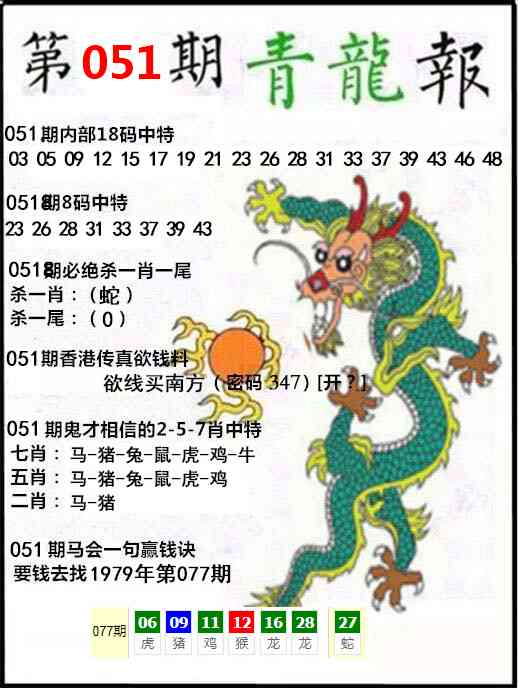 第051期青龍報
051期内部18码中特
03 05 09 12 15 17 19 21 23 26 28 31 33 37 39 43 46 48
051期8码中特
23 26 28 31 33 37 39 43
051期必绝杀一肖一尾
杀一肖：（蛇）
杀一尾：（0）
051期香港传真欲钱料
欲线买南方（密码 347）[开？]
051期鬼才相信的2-5-7肖中特
七肖：马-猪-兔-鼠-虎-鸡-牛
五肖：马-猪-兔-鼠-虎-鸡
二肖：马-猪
051期马会一句赢钱诀
要钱去找1979年第077期
077期 06 09 11 12 16 28 27
虎 猪 鸡 猴 龙 龙 蛇